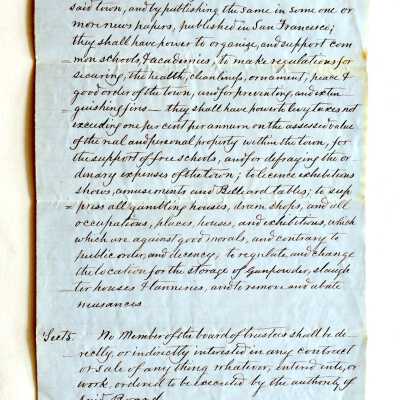 said town, and by publishing the same in some one or
more news papers, published in San Francisco;
they shall have power to organize, and support com
mon schools, & academies, to make regulations for
securing, the health, cleanliness, ornament, peace &
= good order of the town, and for preventing, and extin
guishing fires — they shall have power to levy taxes not
exceeding one per cent per annum on the assessed value
of the real and personal property within the town, for
the support of free schools, and for defraying the or
dinary expenses of the town; to licence exhibitions
shows, amusements and Billiard tables; to sup
= press all gambling houses, dram shops, and all
occupations, places, houses, and exhibitions, which
which are against good morals, and contrary to
public order, and decency, to regulate and change
the location for the storage of Gunpowder, slaugh
ter houses & tanneries, and to remove and abate
nuisances
Sect 5. No Member of the board of trustees shall be di
rectly, or indirectly interested in any contract
or sale of any thing whatever, entered into, or
work ordered to be executed by the authority of
said Board